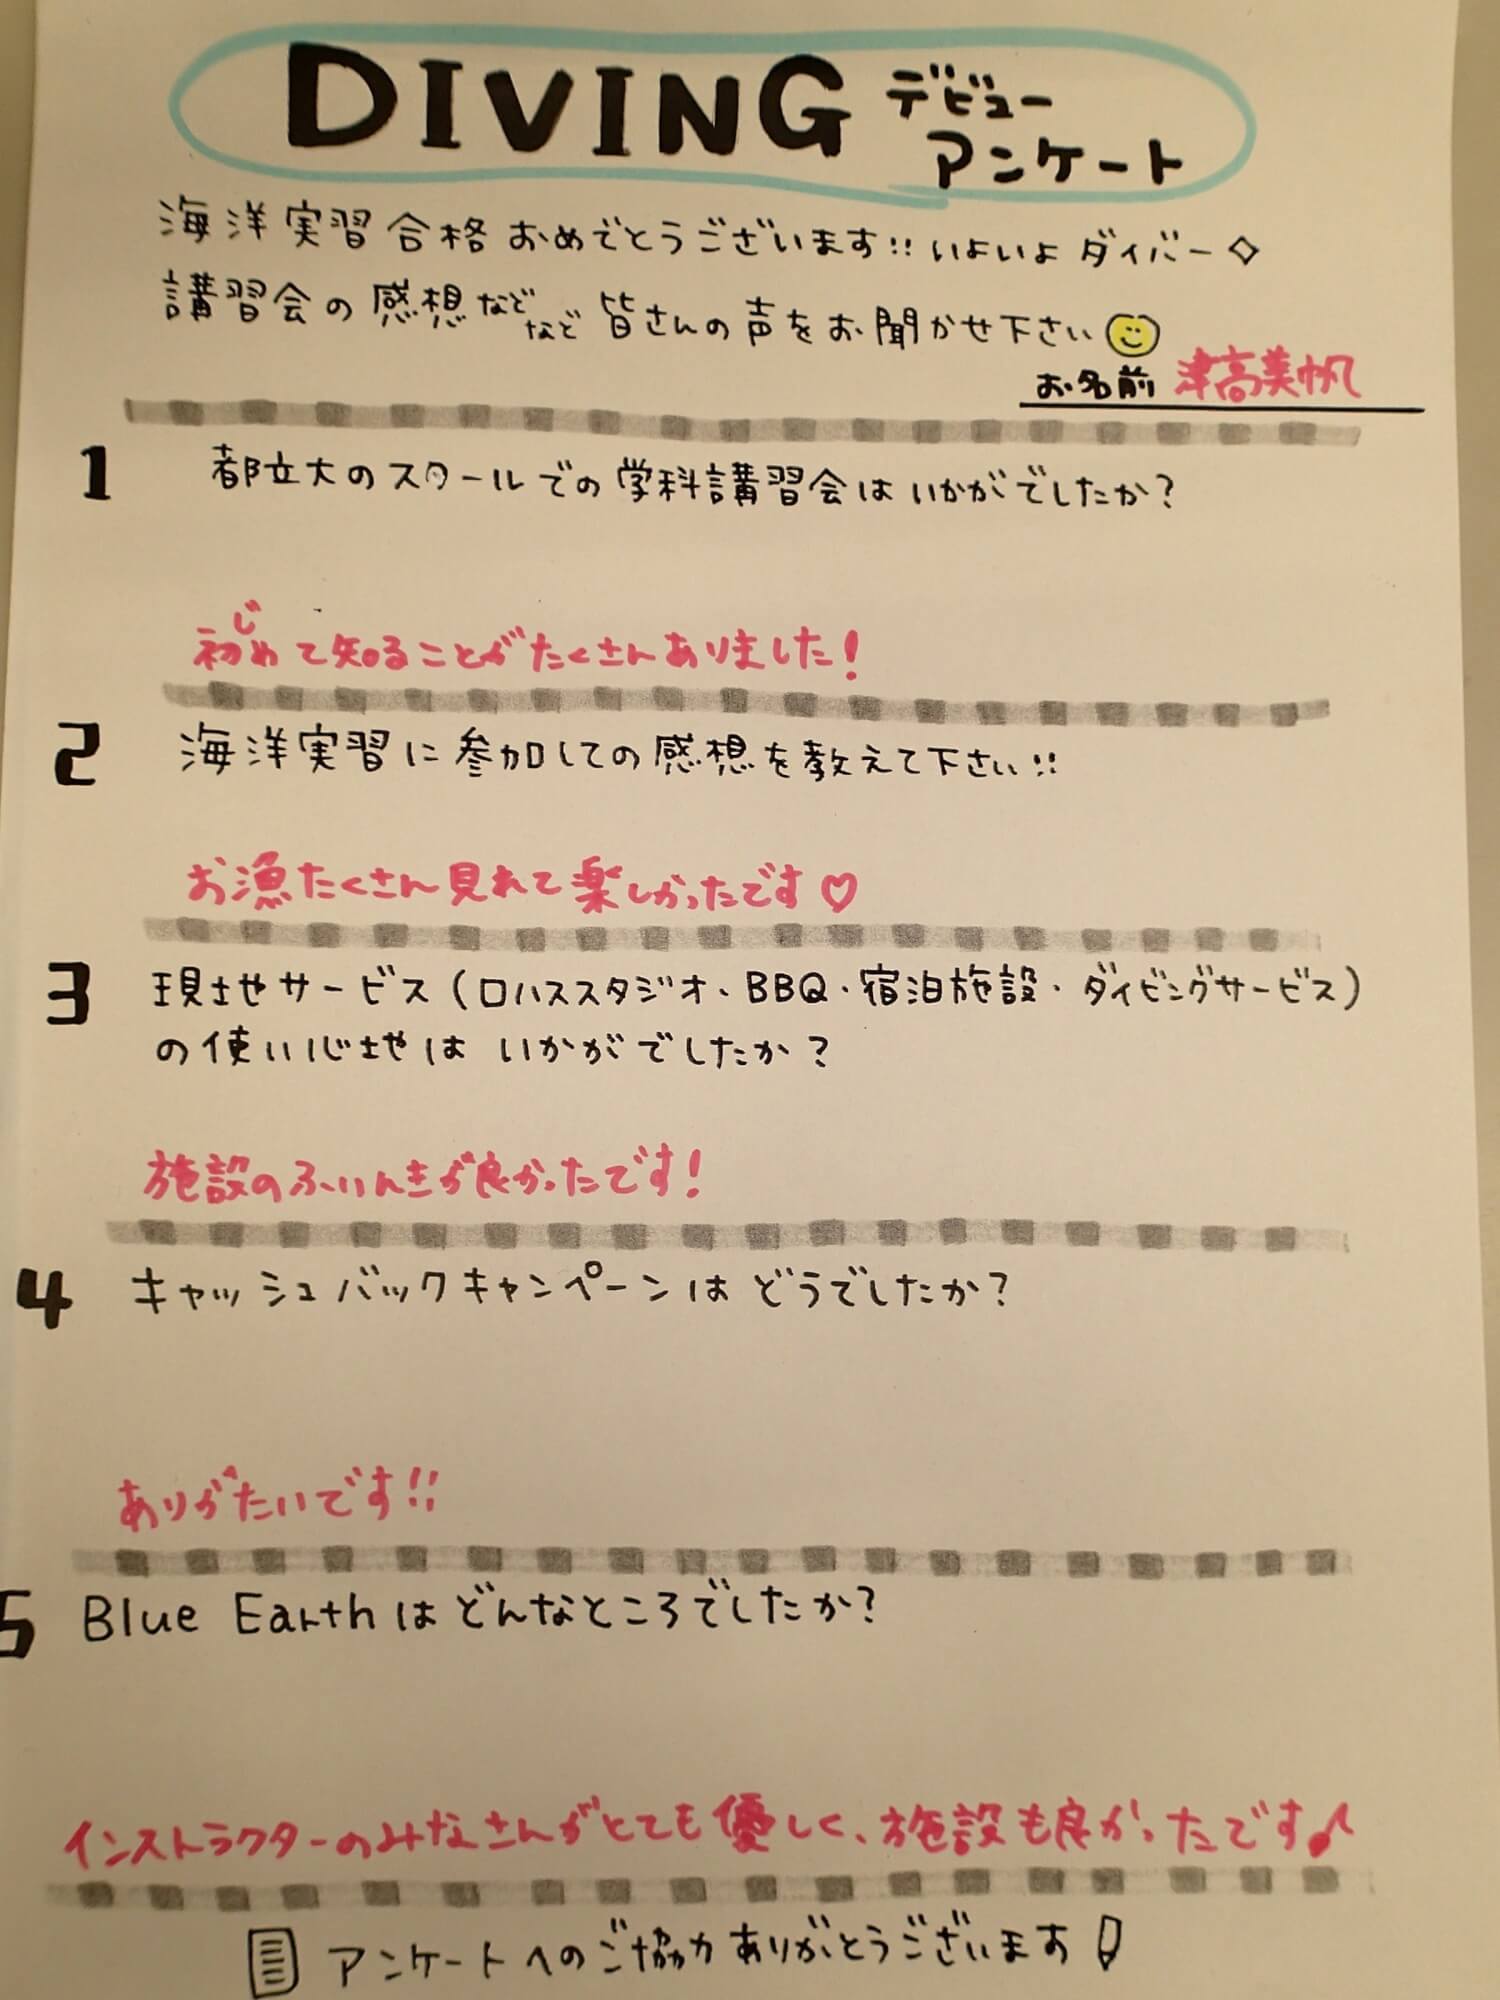 DIVING デビュー
アンケート
海洋実習合格おめでとうございます!! いよいよダイバー◇
講習会の感想などなど皆さんの声をお聞かせ下さい
お名前 津高美帆
1 都立大のスクールでの学科講習会はいかがでしたか?
初じめて知ることがたくさんありました!
2 海洋実習に参加しての感想を教えて下さい!!
お漁たくさん見れて楽しかったです♡
3 現地サービス(ロハススタジオ・BBQ・宿泊施設・ダイビングサービス)
の使い心地はいかがでしたか?
施設のふいんきが良かったです!
4 キャッシュバックキャンペーンはどうでしたか?
ありがたいです!!
5 Blue Earthはどんなところでしたか?
インストラクターのみなさんがとても優しく、施設も良かったです♪
アンケートへのご協力ありがとうございます